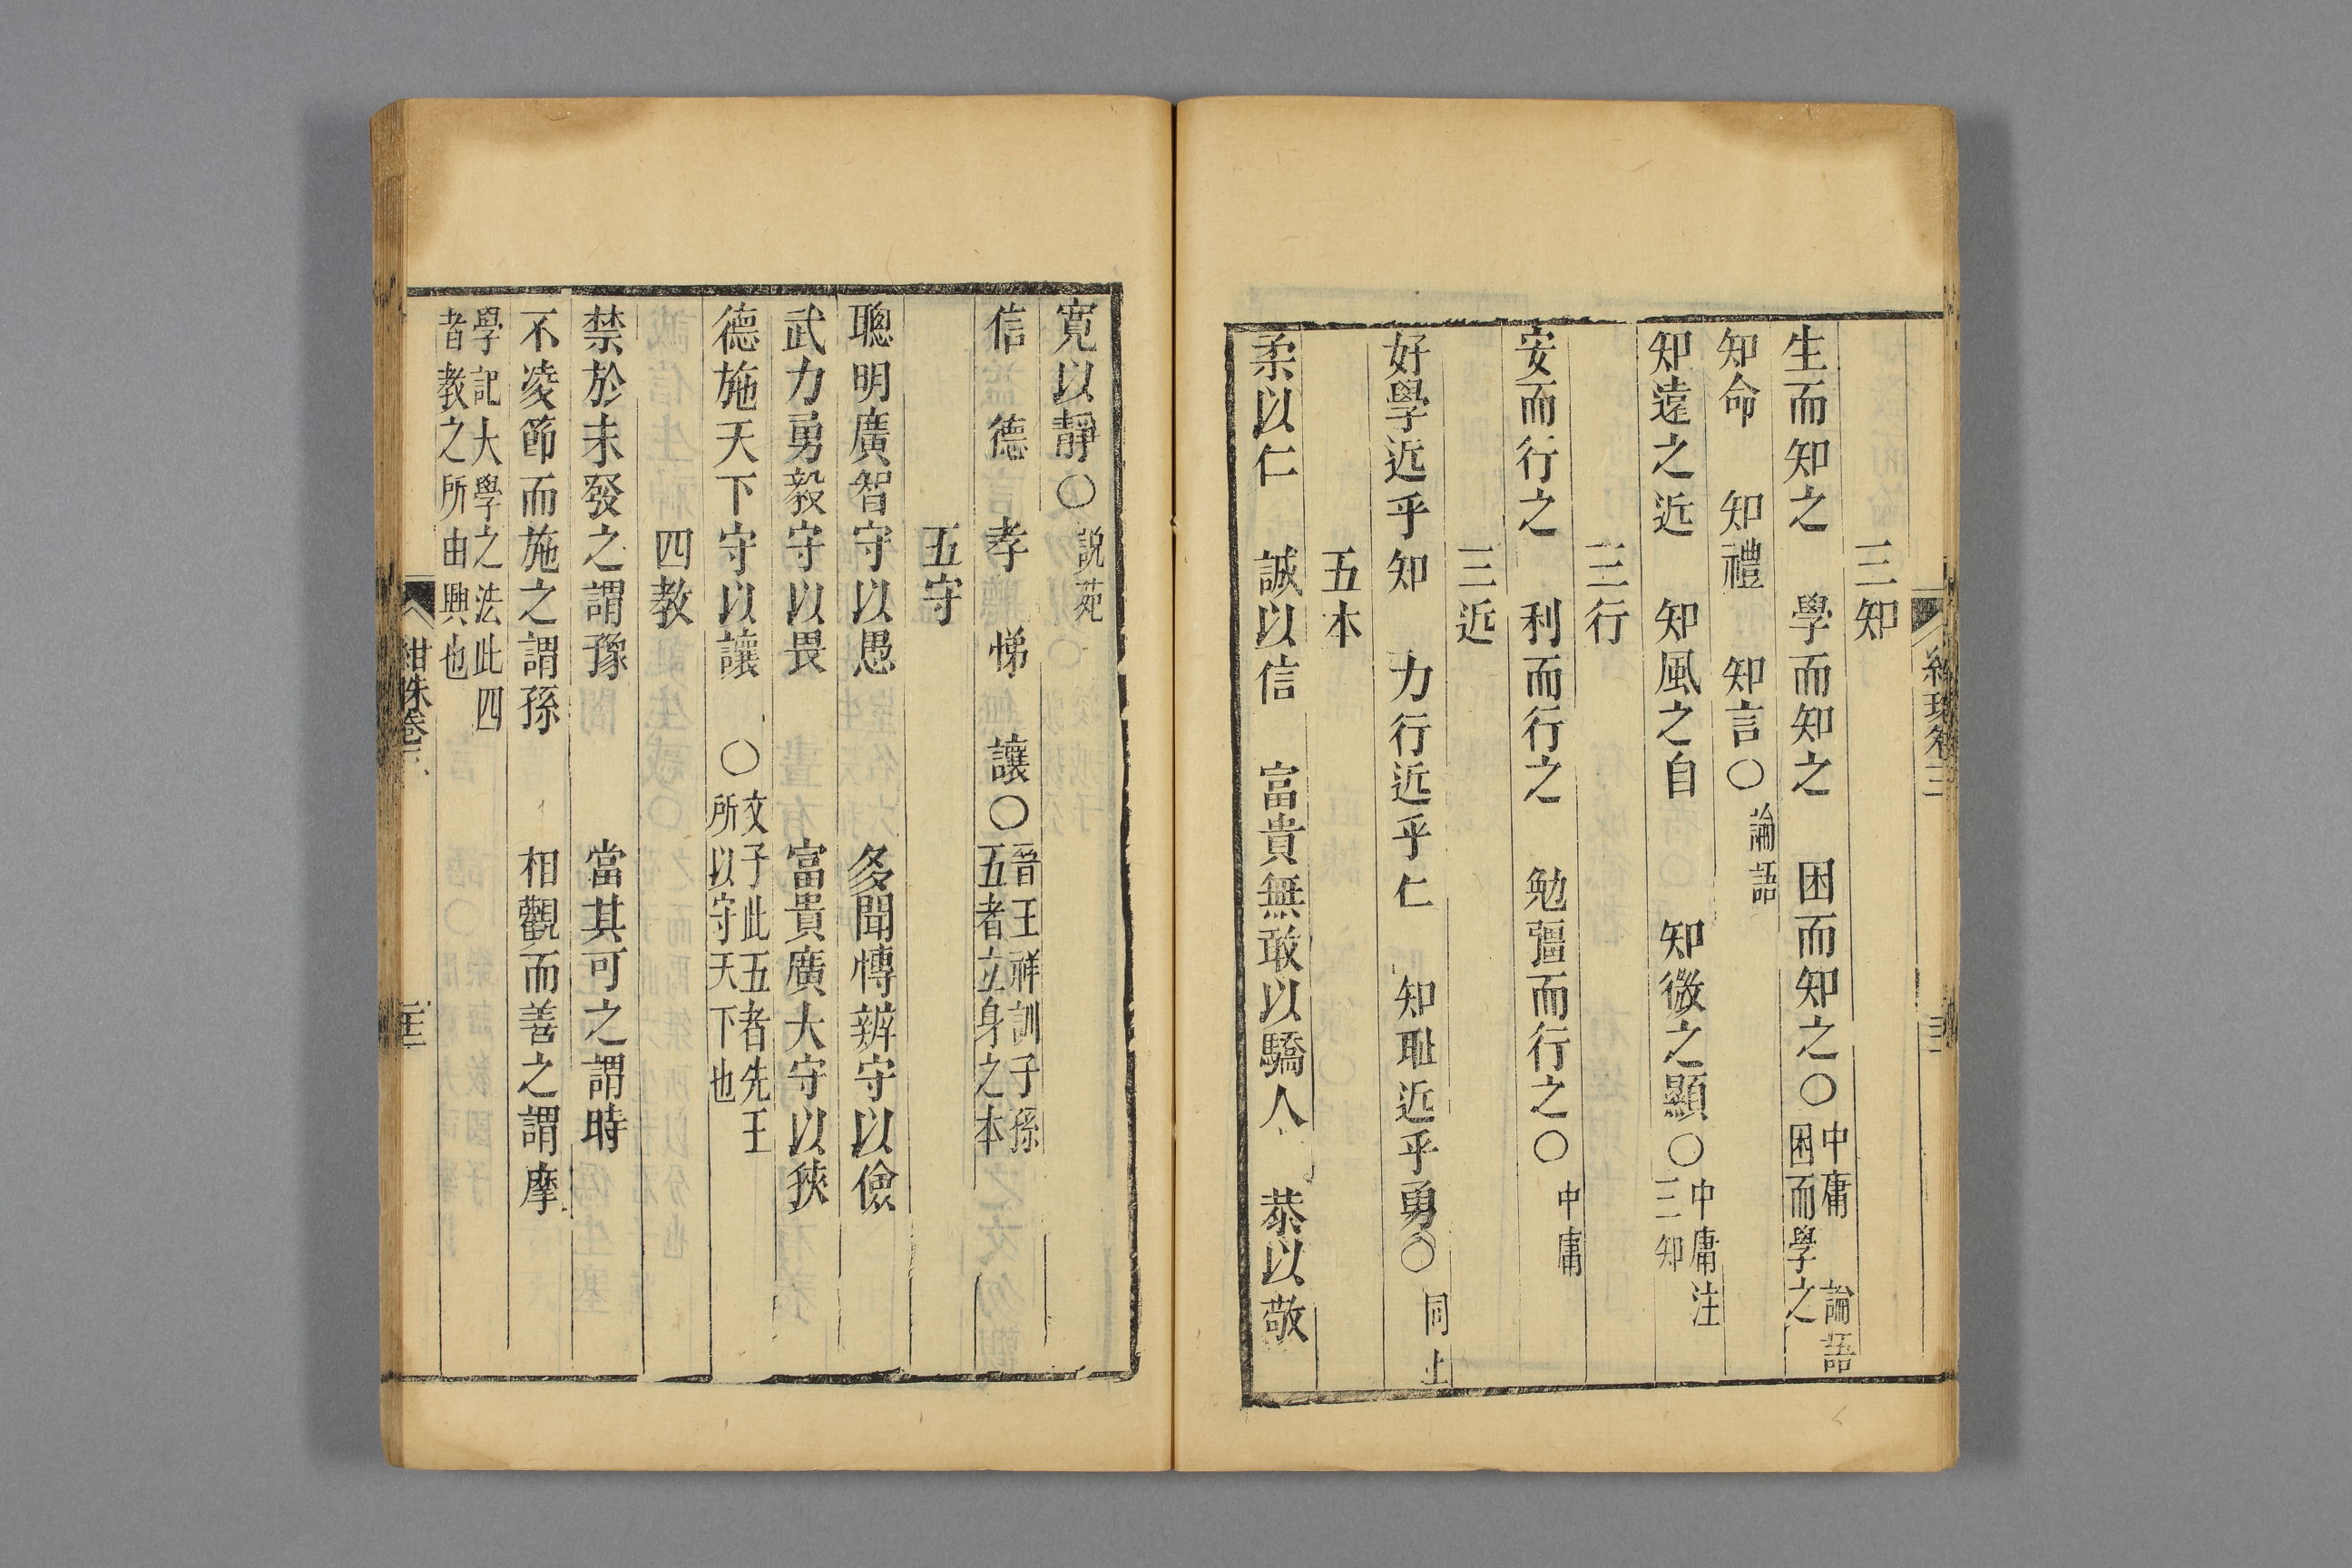 三知
生而知之　學而知之　困而知之○中庸　論語
困而學之
知命　知禮　知言○論語
知遠之近　知風之自　知微之顯○中庸注
三知
三行
安而行之　利而行之　勉彊而行之○中庸
三近
好學近乎知　力行近乎仁　知耻近乎勇○同上
五本
柔以仁　誠以信　富貴無敢以驕人　恭以敬
寬以靜○說苑
信　德　孝　悌　讓○晉王祥訓子孫
五者立身之本
五守
聰明廣智守以愚　多聞博辨守以儉
武力勇毅守以畏　富貴廣大守以狹
德施天下守以讓　○文子此五者先王
所以守天下也
四教
禁於未發之謂豫　當其可之謂時
不凌節而施之謂孫　相觀而善之謂摩
學記大學之法此四
者教之所由興也
紺珠卷三